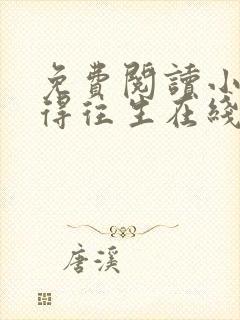 免費閱讀小
得往生在綫
唐溪